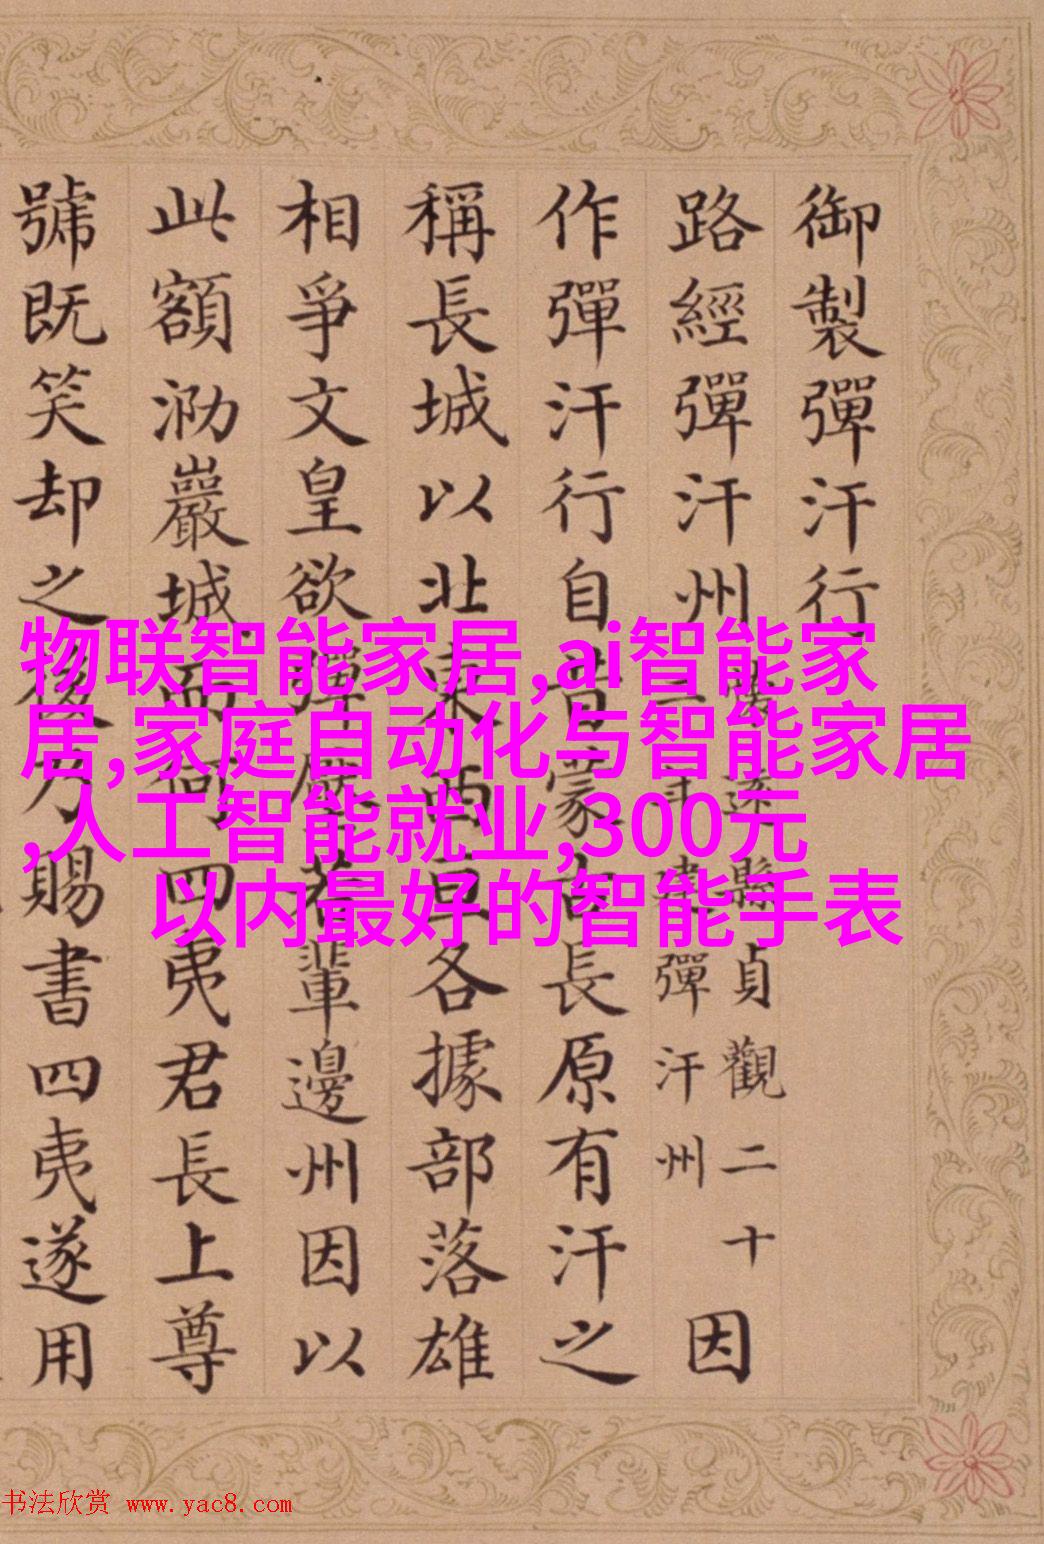 御製彈汗行
路經彈汗州
遠縣貞觀二十
二年建彈汗州
因
作彈汗行自昔蒙古長原有汗之
稱長城以北東西亘各據部落雄
相爭文皇欲彈壓若輩邊州因以
此額泐巖城而何四夷君長上尊
號既笑却之後乃賜書四夷遂用
物联智能家居,ai智能家
居,家庭自动化与智能家居
,人工智能就业,300元
以内最好的智能手表
书法欣赏 www.yac8.com